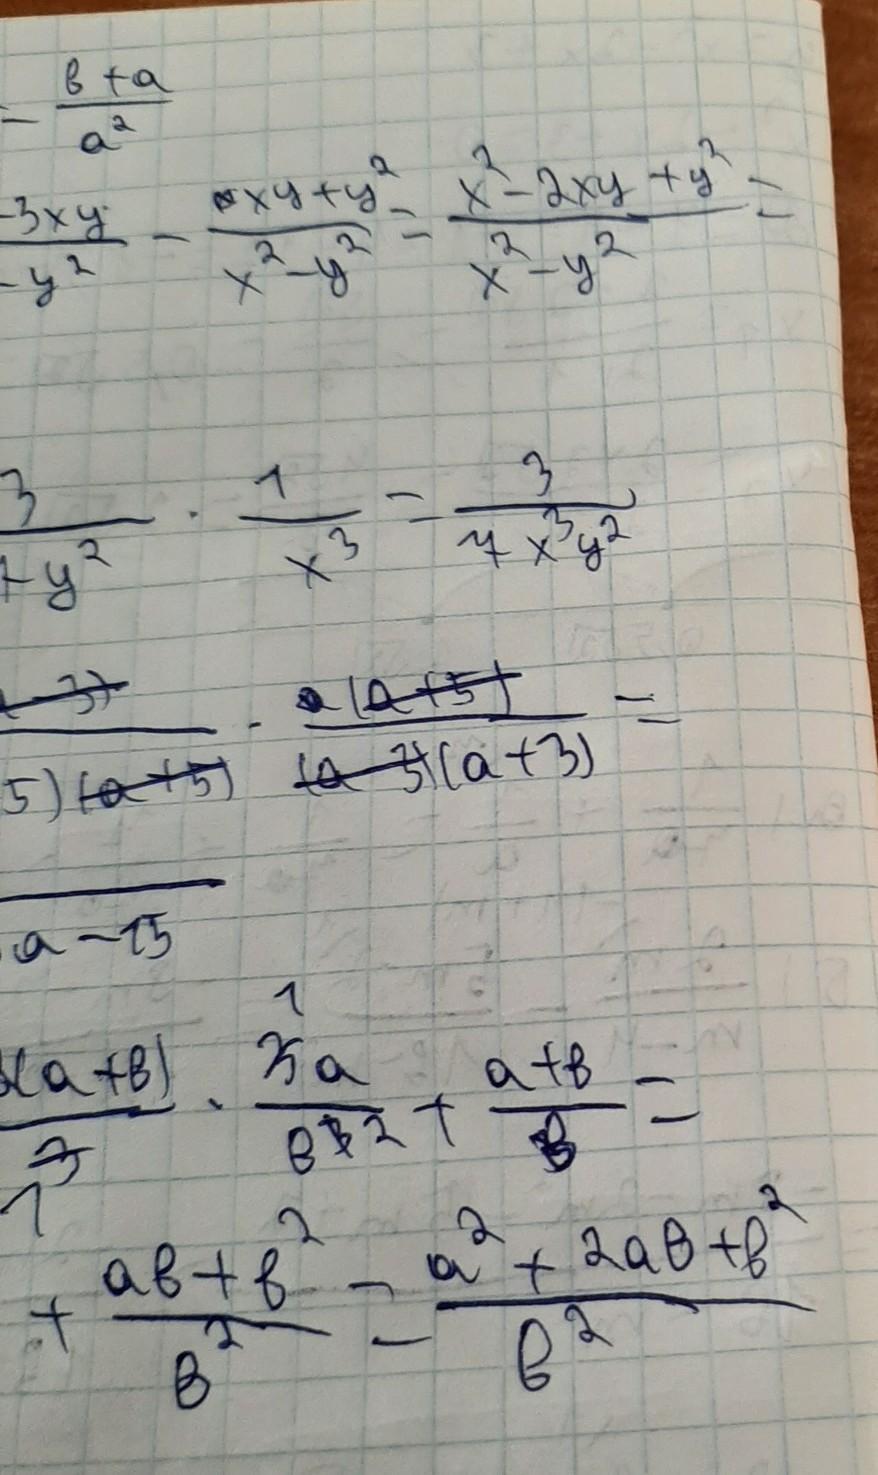 = (в+a)/a²
-3xy/-y² - (xy+y²)/(x²-y²) = (x²-2xy+y²)/(x²-y²) =
3/7y² · 1/x³ = 3/(7x³y²)
-3)/5)(a+5) · a(a+5)/(a-3)(a+3) =
a-15
1
(a+в)/3 · 3a/в² + (a+в)/в =
1
+ (aв+в²)/в² = (a²+2aв+в²)/в²